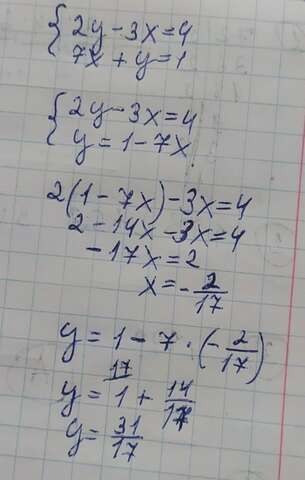 {2y-3x=4
7x+y=1
{2y-3x=4
y=1-7x
2(1-7x)-3x=4
2-14x-3x=4
-17x=2
x=-2/17
y=1-7·(-2/17)
17
y=1+14/17
y=31/17